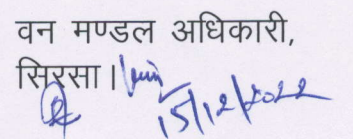 वन मण्डल अधिकारी,
सिरसा।
15/12/2022